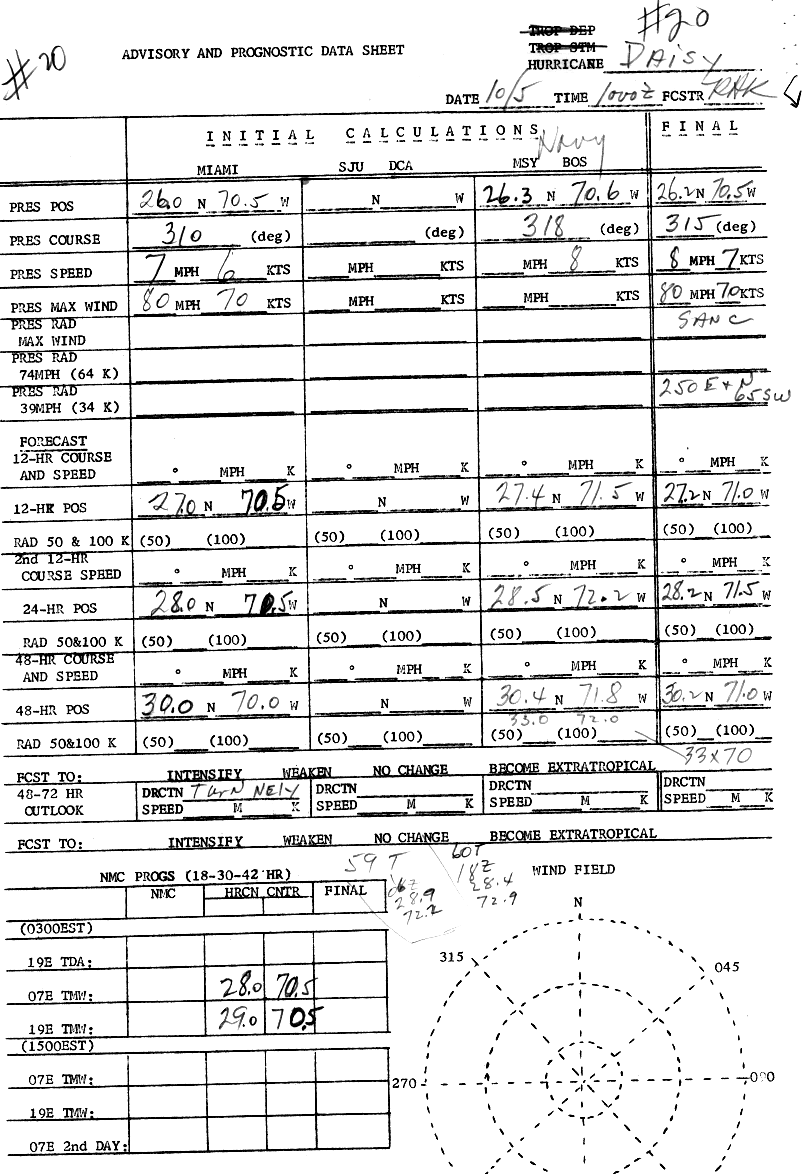 #20
#20
ADVISORY AND PROGNOSTIC DATA SHEET
TROP DEP
TROP STM
HURRICANE Daisy
DATE 10/5 TIME 1000Z FCSTR RHK
INITIAL CALCULATIONS FINAL
Navy
MIAMI SJU DCA MSY BOS
PRES POS 26.0 N 70.5 W N W 26.3 N 70.6 W 26.2 N 70.5 W
PRES COURSE 310 (deg) (deg) 318 (deg) 315 (deg)
PRES SPEED 7 MPH 6 KTS MPH KTS MPH 8 KTS 8 MPH 7 KTS
PRES MAX WIND 80 MPH 70 KTS MPH KTS MPH KTS 80 MPH 70 KTS
PRES RAD
MAX WIND SANC
PRES RAD
74MPH (64 K)
PRES RAD
39MPH (34 K) 250 E + N
65 SW
FORECAST
12-HR COURSE
AND SPEED ° MPH K ° MPH K ° MPH K ° MPH K
12-HR POS 27.0 N 70.5 W N W 27.4 N 71.5 W 27.2 N 71.0 W
RAD 50 & 100 K (50) (100) (50) (100) (50) (100) (50) (100)
2nd 12-HR
COURSE SPEED ° MPH K ° MPH K ° MPH K ° MPH K
24-HR POS 28.0 N 70.5 W N W 28.5 N 72.2 W 28.2 N 71.5 W
RAD 50&100 K (50) (100) (50) (100) (50) (100) (50) (100)
48-HR COURSE
AND SPEED ° MPH K ° MPH K ° MPH K ° MPH K
48-HR POS 30.0 N 70.0 W N W 30.4 N 71.8 W 30.2 N 71.0 W
33.0 72.0
RAD 50&100 K (50) (100) (50) (100) (50) (100) (50) (100)
33 x 70
FCST TO: INTENSIFY WEAKEN NO CHANGE BECOME EXTRATROPICAL
48-72 HR DRCTN Turn NEly DRCTN DRCTN DRCTN
OUTLOOK SPEED M K SPEED M K SPEED M K SPEED M K
FCST TO: INTENSIFY WEAKEN NO CHANGE BECOME EXTRATROPICAL
NMC PROGS (18-30-42 HR) 59 T 60T WIND FIELD
06Z 18Z
28.9 28.4
72.2 72.9
NMC HRCN CNTR FINAL
N
(0300EST)
315 045
19E TDA:
07E TMW: 28.0 70.5
19E TMW: 29.0 70.5
(1500EST)
07E TMW: 270 090
19E TMW:
07E 2nd DAY: